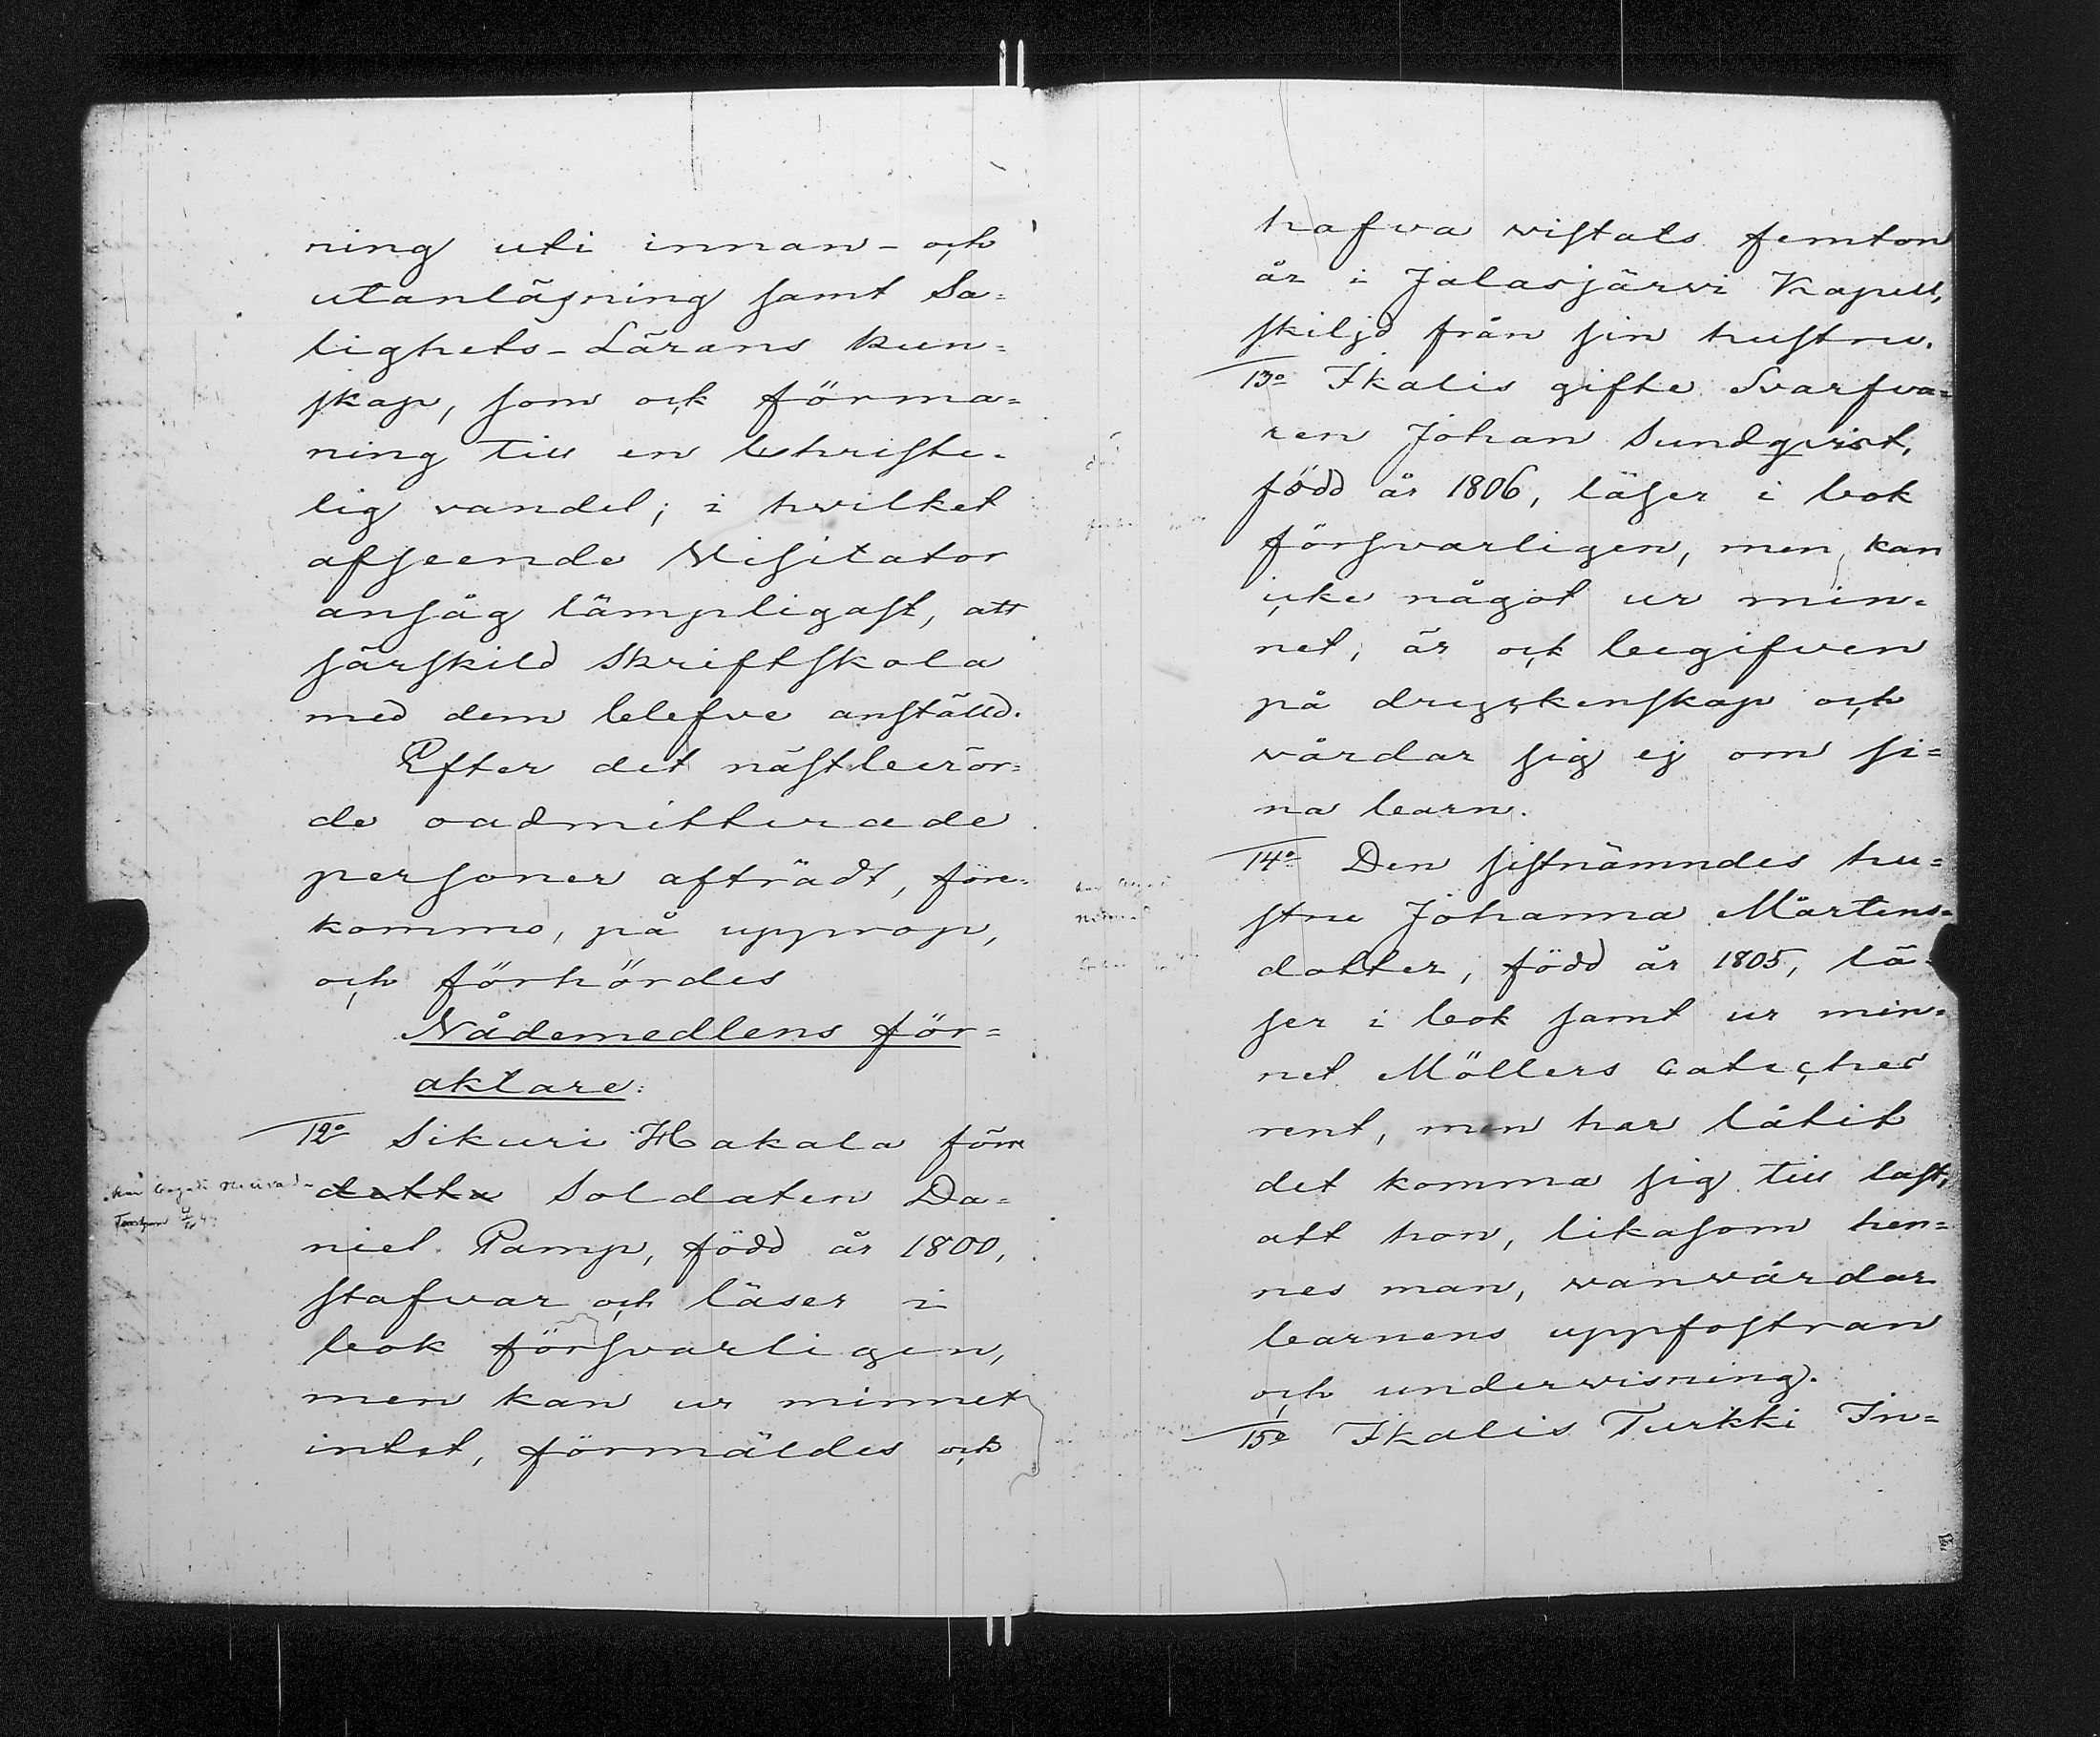 ning uti innan- och
utanläsning samt Sa=
lighets-Lärans kun=
skap, som ock förma=
ning till en Christe=
lig vandel; i hwilket
afseende Visitator
ansåg lämpligast, att
särskild Skriftskola
med dem blefve anställd.
Efter det nästberör=
de oadmitterade
personer afträdt, före=
kommo, på upprop,
och förhördes
Nådemedlens för=
aktare:
12o Sikuri Hakala förre
detta Soldaten Da=
niel Pamp, född år 1800,
stafvar och läser i
bok försvarligen,
men kan ur minnet
intet, förmäldes och
hafva vistats femton
år i Jalasjärvi Kapell,
skiljd från sin hustru.
13o Ikalis gifte Svarfva=
ren Johan Sundqvist,
född år 1806, läser i bok
försvarligen, men kan
icke något ur min=
net, är och begifven
på dryckenskap och
vårdar sig ej om si=
na barn.
14o Den sistnämndes hu=
stru Johanna Mårtens=
dotter, född år 1805, lä=
ser i bok samt ur min=
net Möllers Cateches
rent, men har låtit
det komma sig till last,
att hon, likasom hen=
nes man, vanvårdar
barnens uppfostran
och undervisning.
15o Ikalis Turkki In=